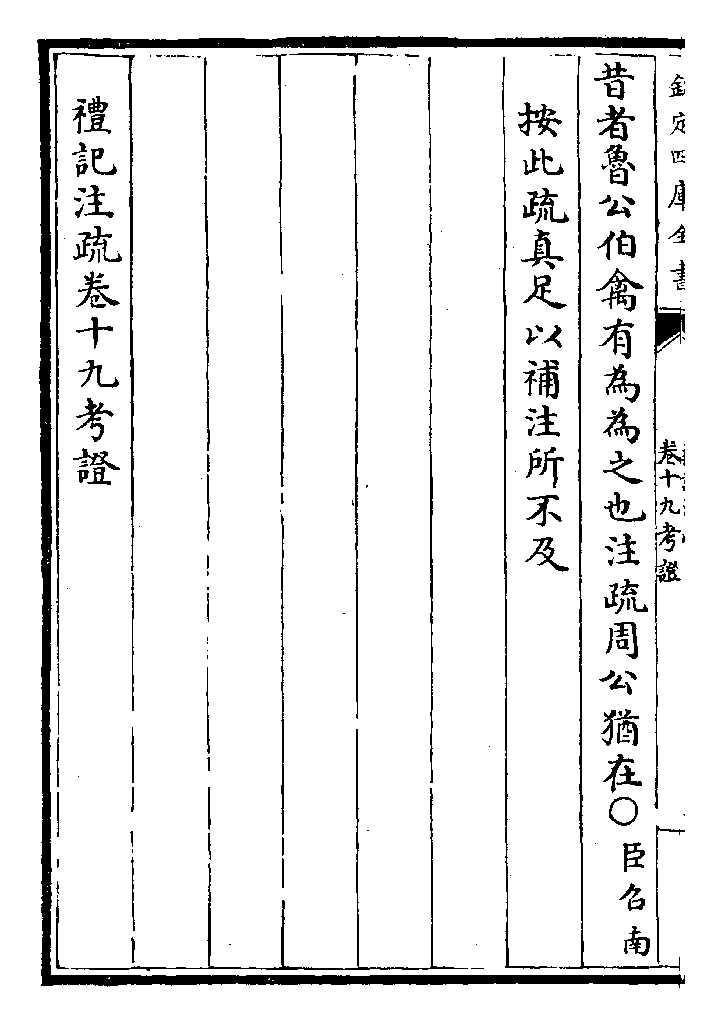 欽定四庫全書
卷十九考證
昔者魯公伯禽有為為之也注疏周公猶在〇臣召南
按此疏真足以補注所不及
禮記注疏卷十九考證